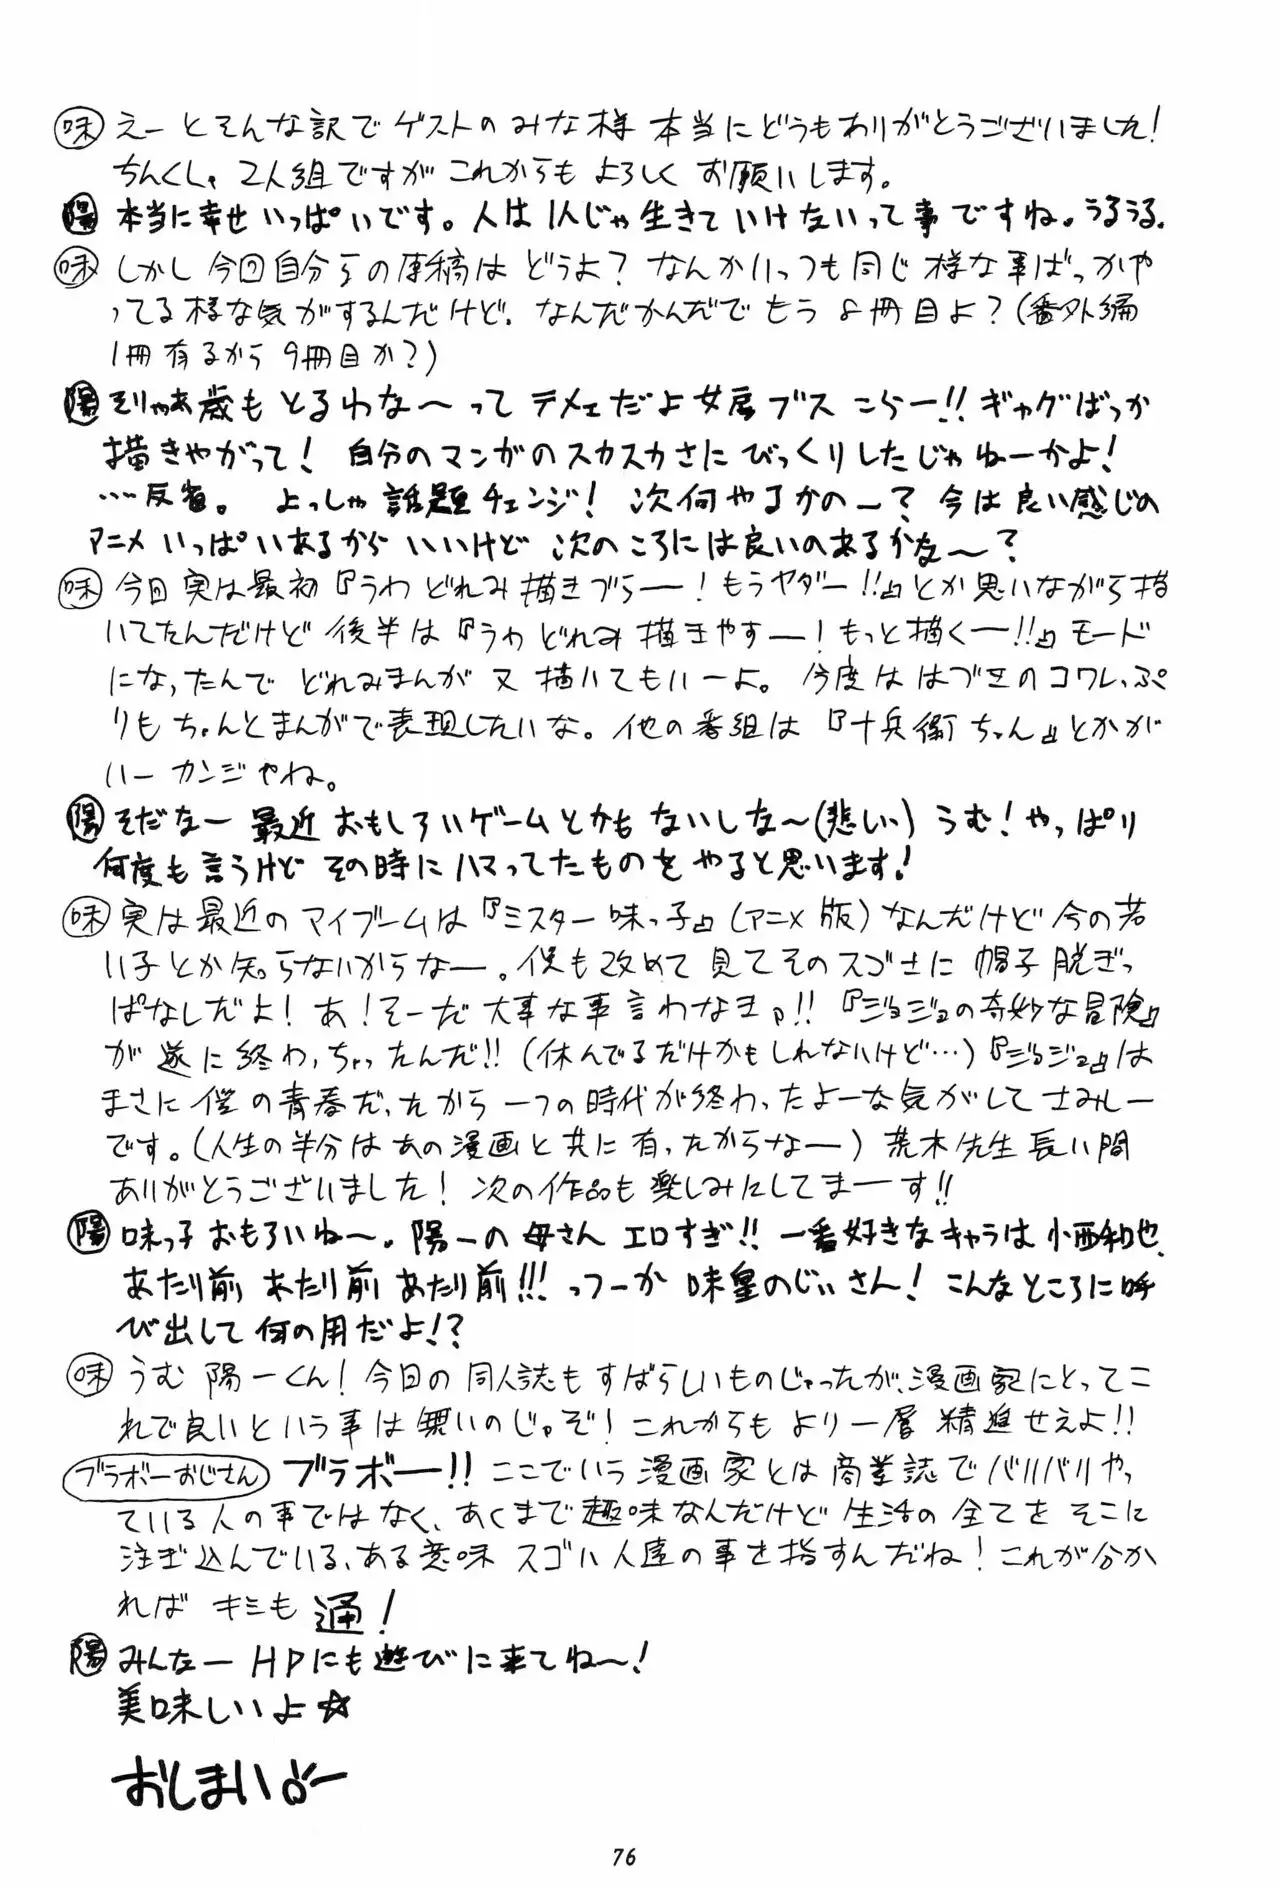 味 えーとそんな訳でゲストのみな様 本当にどうもありがとうございました!
ちんくしゃ 2人組ですがこれからもよろしくお願いします。
陽 本当に幸せいっぱいです。人は1人じゃ生きていけないって事ですね。うるうる.
味 しかし今回自分らの原稿はどうよ?なんかいっつも同じ様な事ばっかや
ってる様な気がするんだけど、なんだかんだでもう8冊目よ?(番外編
1冊有るから9冊目か?)
陽 そりゃあ歳もとるわな〜ってテメェだよ女房ブスこらー!!ギャグばっか
描きやがって! 自分のマンガのスカスカさにびっくりしたじゃねーかよ!
…反省。 よっしゃ話題チェンジ! 次何やるかのー? 今は良い感じの
アニメいっぱいあるからいいけど次のころには良いのあるかな〜?
味 今回実は最初『うわどれみ描きづらー!もうヤダー!!』とか思いながら描
いてたんだけど後半は『うわどれみ描きやすー!もっと描くー!!』モード
になったんでどれみまんが又描いてもいーよ。今度ははづきのコワレっぷ
りもちゃんとまんがで表現したいな。他の番組は『十兵衛ちゃん』とかが
いーカンジやね。
陽 そだなー最近おもしろいゲームとかもないしな〜(悲しい) うむ!やっぱり
何度も言うけどその時にハマってたものをやると思います!
味 実は最近のマイブームは『ミスター味っ子』(アニメ版)なんだけど今の若
い子とか知らないからなー。僕も改めて見てそのスゴさに帽子脱ぎっ
ぱなしだよ!あ!そーだ大事な事言わなきゃ!!『ジョジョの奇妙な冒険』
が遂に終わっちゃったんだ!!(休んでるだけかもしれないけど…)『ジョジョ』は
まさに僕の青春だったから一つの時代が終わったよーな気がしてさみしー
です。(人生の半分はあの漫画と共に有ったからなー)荒木先生長い間
ありがとうございました!次の作品も楽しみにしてまーす!!
陽 味っ子おもろいね〜。陽一の母さんエロすぎ!!一番好きなキャラは小西和也、
あたり前あたり前あたり前!!!っつーか味皇のじぃさん!こんなところに呼
び出して何の用だよ!?
味 うむ陽一くん!今日の同人誌もすばらしいものじゃったが、漫画家にとってこ
れで良いという事は無いのじゃぞ!これからもより一層精進せえよ!!
ブラボーおじさん ブラボー!!ここでいう漫画家とは商業誌でバリバリやっ
ている人の事ではなく、あくまで趣味なんだけど生活の全てをそこに
注ぎ込んでいる、ある意味スゴい人達の事を指すんだね!これが分か
ればキミも通!
陽 みんなーHPにも遊びに来てね〜!
美味しいよ☆
おしまい
76